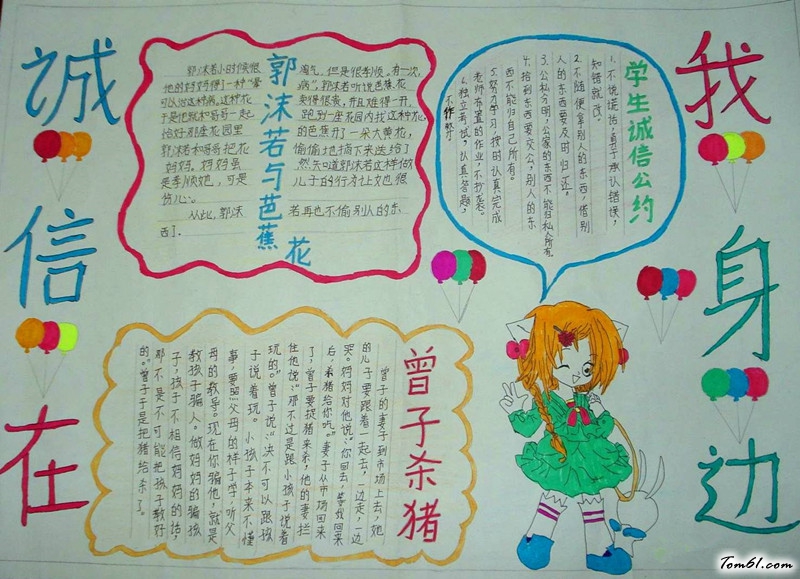 诚信在
我身边
郭沫若与芭蕉花
郭沫若小的时候很淘气,但是很孝顺。有一次,
他的妈妈得了一种“晕病”,郭沫若听说芭蕉花
可以治这种病,这种花卖得很贵,而且难得一开。
于是他就和哥哥一起跑到一座花园内找这种花,
恰好那座花园里的芭蕉开了一朵大黄花,
郭沫若和哥哥把花偷偷地摘下来送给了
妈妈。妈妈虽然知道郭沫若这样做
是孝顺她,可是儿子的行为让她很
伤心。
从此,郭沫若再也不偷别人的东
西了。
学生诚信公约
1.不说谎话,勇于承认错误,
知错就改。
2.不随便拿别人的东西,借别
人的东西要及时归还。
3.公私分明,公家的东西不能归私人所有
4.拾到东西要交公,别人的东
西不能归自己所有。
5.努力学习,按时认真完成
老师布置的作业,不抄袭。
6.独立考试,认真答题,
不作弊。
曾子杀猪
曾子的妻子到市场上去,她
的儿子要跟着一起去,一边走,一边
哭。妈妈对他说:“你回去,等我回来
后,杀猪给你吃。”妻子从市场回来
了,曾子要捉猪来杀,他的妻拦
住他说:“那不过是跟小孩子说着
玩的。”曾子说:“决不可以跟孩
子说着玩。小孩子本来不懂
事,要照父母的样子学,听父
母的教导。现在你骗他,就是
教孩子骗人。做妈妈的骗孩
子,孩子不相信妈妈的话,
那不是不可能把孩子教好
的。”曾子于是把猪给杀了。
Tom61.com